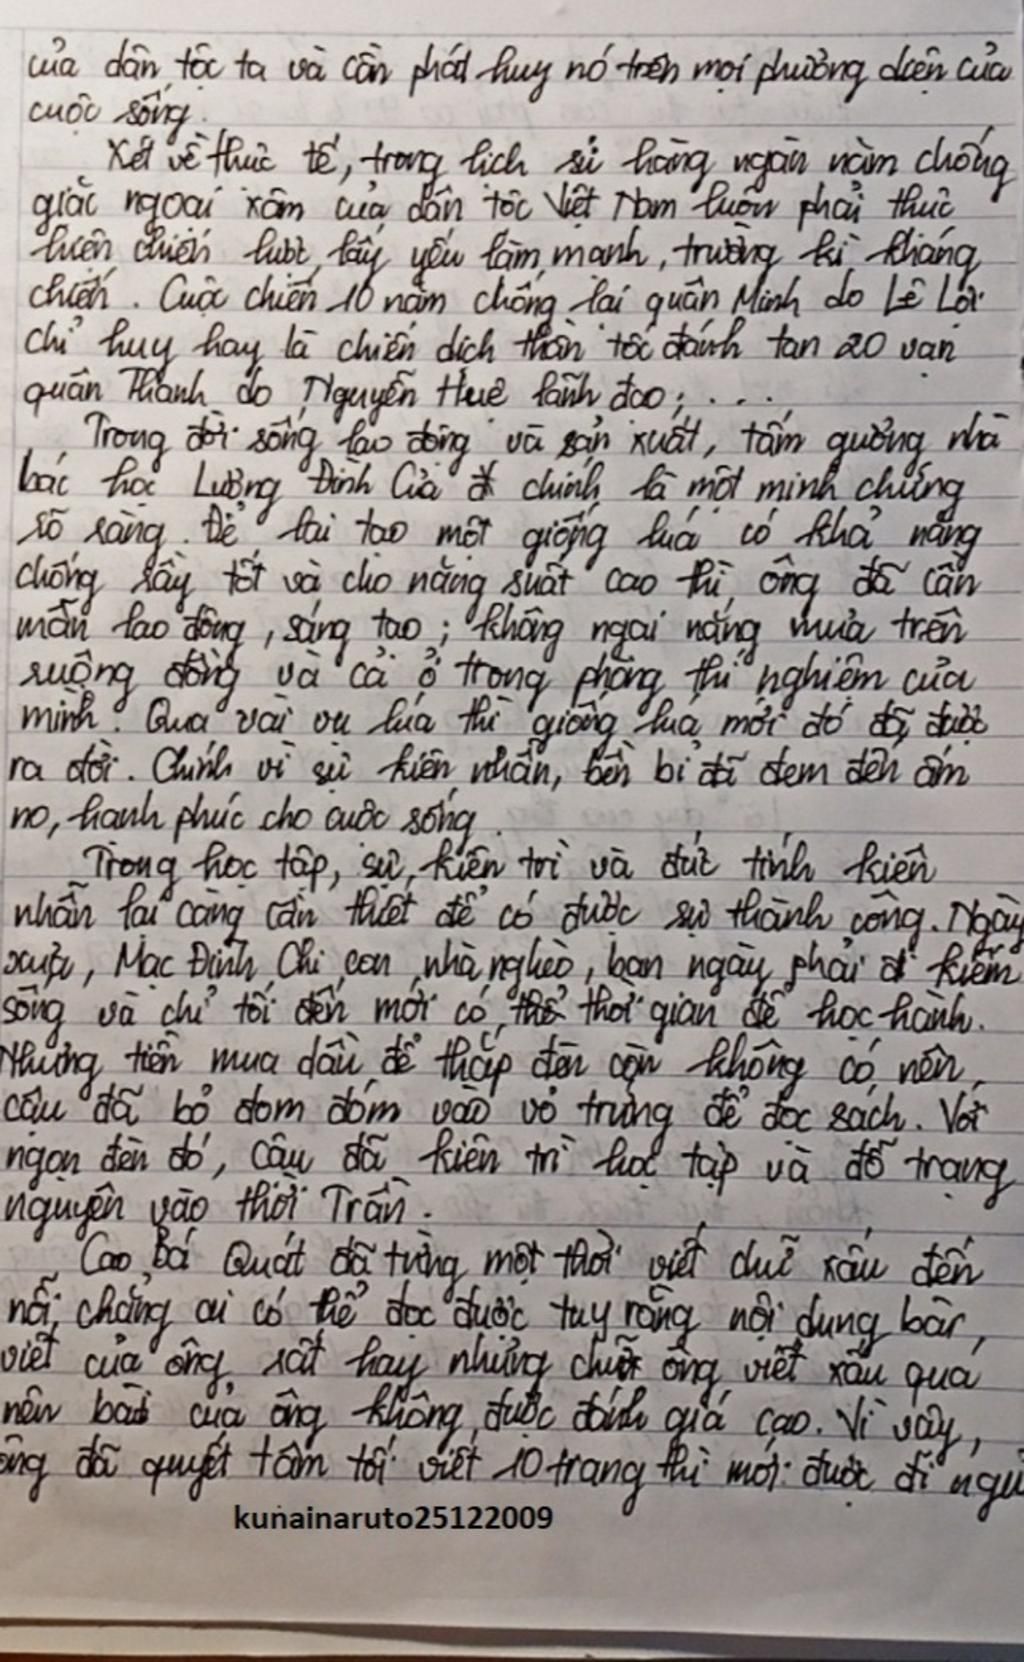 của dân tộc ta và cần phát huy nó trên mọi phương diện của
cuộc sống.
Xét về thực tế, trong lịch sử hàng ngàn năm chống
giặc ngoại xâm của dân tộc Việt Nam luôn phải thực
hiện chiến lược lấy yếu làm mạnh, trường kì kháng
chiến. Cuộc chiến 10 năm chống lại quân Minh do Lê Lợi
chỉ huy hay là chiến dịch thần tốc đánh tan 20 vạn
quân Thanh do Nguyễn Huệ lãnh đạo; ....
Trong đời sống lao động và sản xuất, tấm gương nhà
bác học Lương Đình Của chính là một minh chứng
rõ ràng. Để lai tạo một giống lúa có khả năng
chống rầy tốt và cho năng suất cao thì ông đã cần
mẫn lao động, sáng tạo; không ngại nắng mưa trên
ruộng đồng và cả ở trong phòng thí nghiệm của
mình. Qua vài vụ lúa thì giống lúa mới đó đã được
ra đời. Chính vì sự kiên nhẫn, bền bỉ đã đem đến ấm
no, hạnh phúc cho cuộc sống.
Trong học tập, sự kiên trì và đức tính kiên
nhẫn lại càng cần thiết để có được sự thành công. Ngày
xưa, Mạc Đĩnh Chi con nhà nghèo, ban ngày phải đi kiếm
sống và chỉ tối đến mới có thể thời gian để học hành.
Nhưng tiền mua dầu để thắp đèn còn không có nên
cậu đã bỏ đom đóm vào vỏ trứng để đọc sách. Với
ngọn đèn đó, cậu đã kiên trì học tập và đỗ trạng
nguyên vào thời Trần.
Cao Bá Quát đã từng một thời viết chữ xấu đến
nỗi chẳng ai có thể đọc được tuy rằng nội dung bài
viết của ông rất hay nhưng chữ ông viết xấu quá
nên bài của ông không được đánh giá cao. Vì vậy,
ông đã quyết tâm tối viết 10 trang thì mới được đi ngủ
kunainaruto25122009